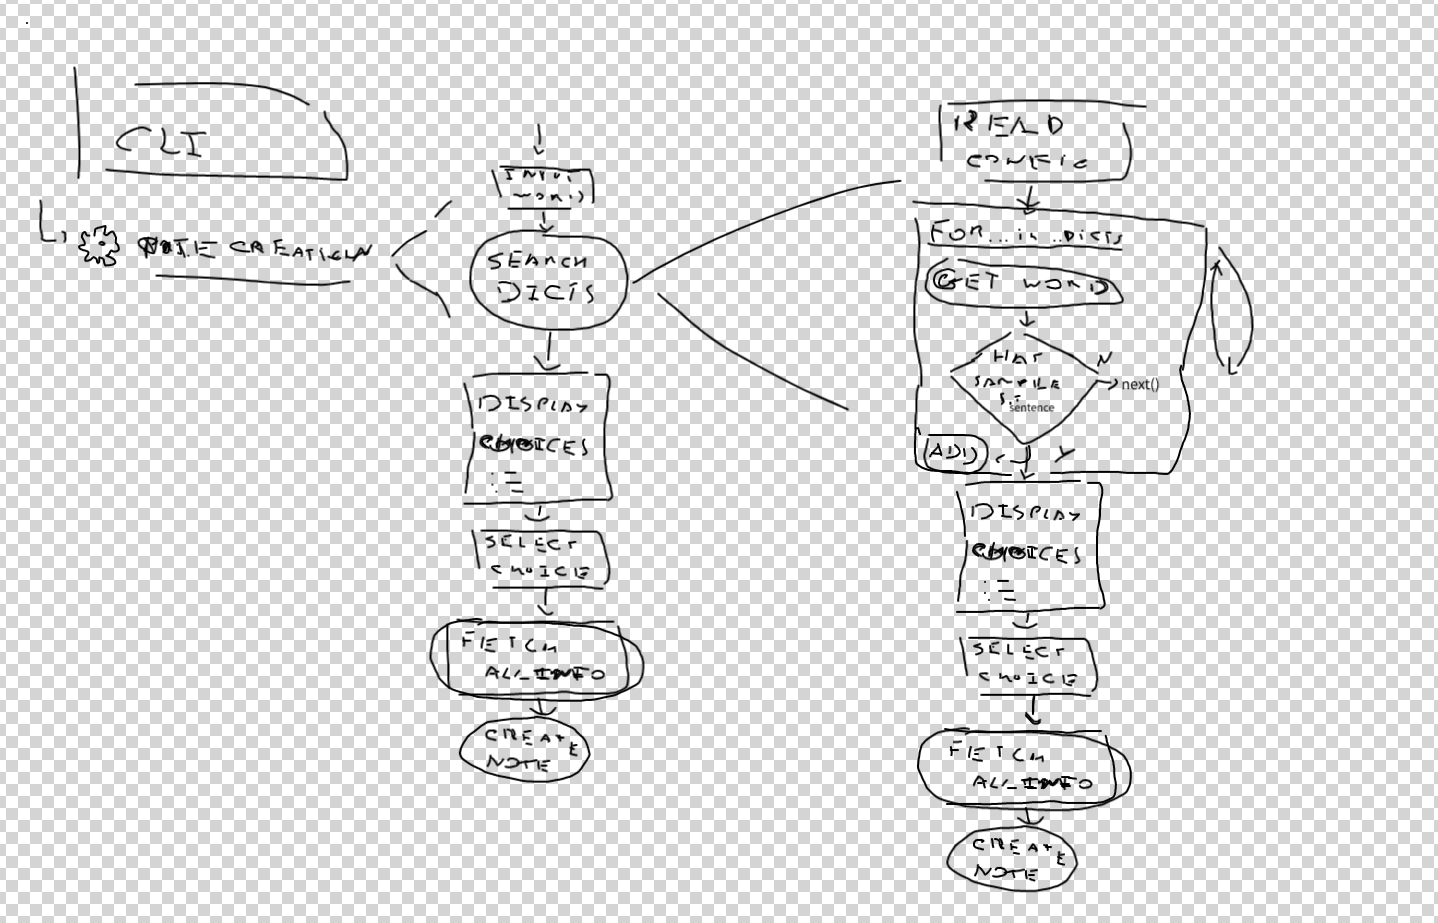 CLI
NOTE CREATION
INPUT
WORD
SEARCH
DICTS
DISPLAY
CHOICES
SELECT
CHOICE
FETCH
ALL INFO
CREATE
NOTE
READ
CONFIG
FOR...in..DICTS
GET WORD
HAS
SAMPLE
sentence
N
next()
ADD
Y
DISPLAY
CHOICES
SELECT
CHOICE
FETCH
ALL INFO
CREATE
NOTE